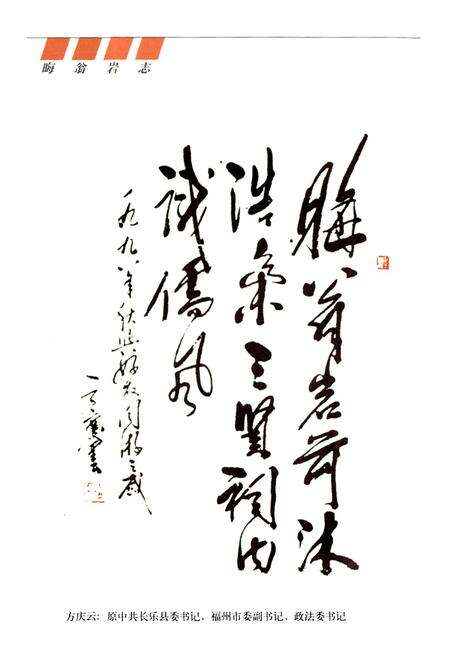 晦翁岩志
晦翁岩前沐
浩气三贤祠内
识儒风
一九九八年秋与好友同游之感
方庆云书
方庆云：原中共长乐县委书记、福州市委副书记、政法委书记